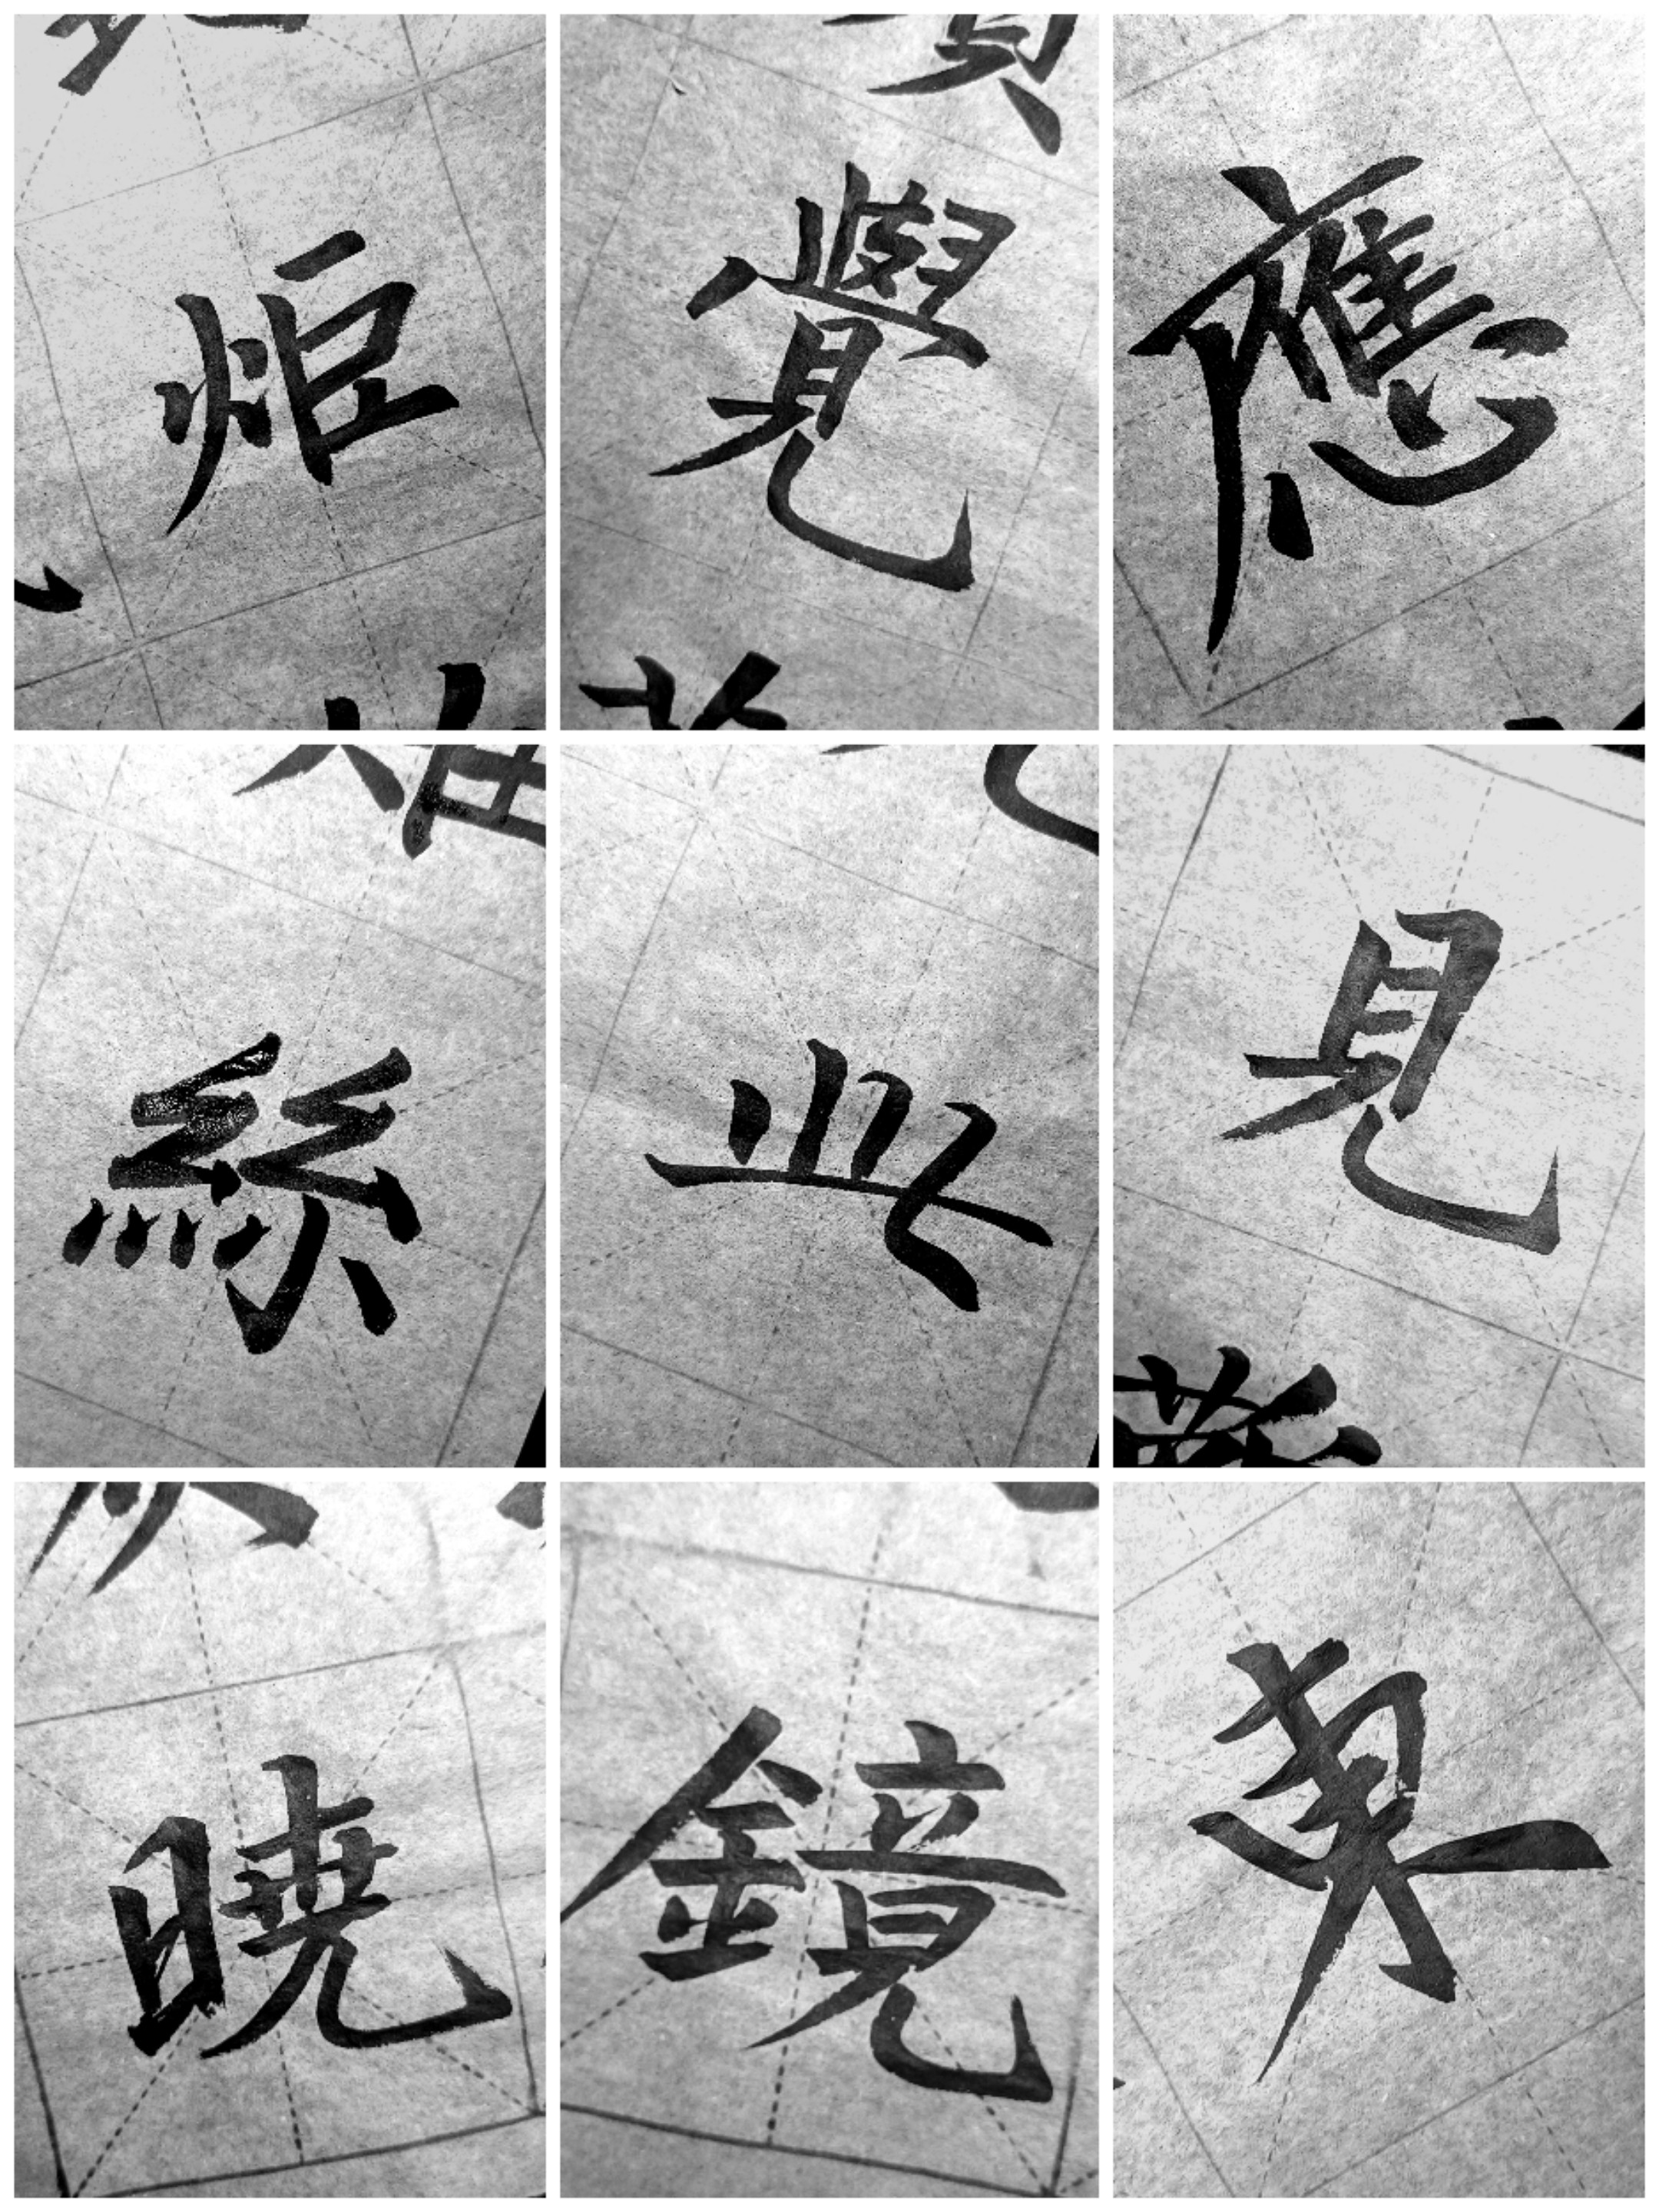 炬 覺 應
絲 此 見
曉 鏡 東